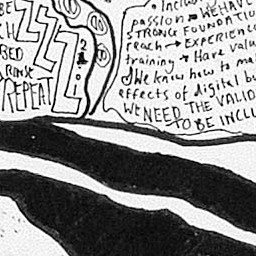 BE
CH
BED
RINSE
REPEAT
ZZZZ
2
• Inclu
passion → WE HAVE
STRONG FOUNDATIO
reach → EXPERIENC
training → Have valu
We know how to ma
effects of digital bu
WE NEED THE VALID
TO BE INCLU